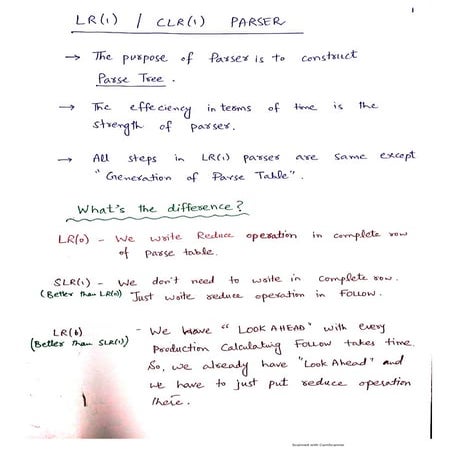 1
LR(1) / CLR(1) PARSER
→ The purpose of Parser is to construct
Parse Tree.
→ The effeciency in terms of time is the
strength of parser.
→ All steps in LR(1) parser are same except
"Generation of Parse Table".
What's the difference?
LR(0) - We write Reduce operation in complete row
of parse table.
SLR(1) - We don't need to write in complete row.
(Better than LR(0)) Just write reduce operation in FOLLOW.
LR(1) - We have "LOOK AHEAD" with every
(Better than SLR(1)) Production Calculating FOLLOW takes time.
So, we already have "Look Ahead" and
we have to just put reduce operation
there.
Scanned with CamScanner